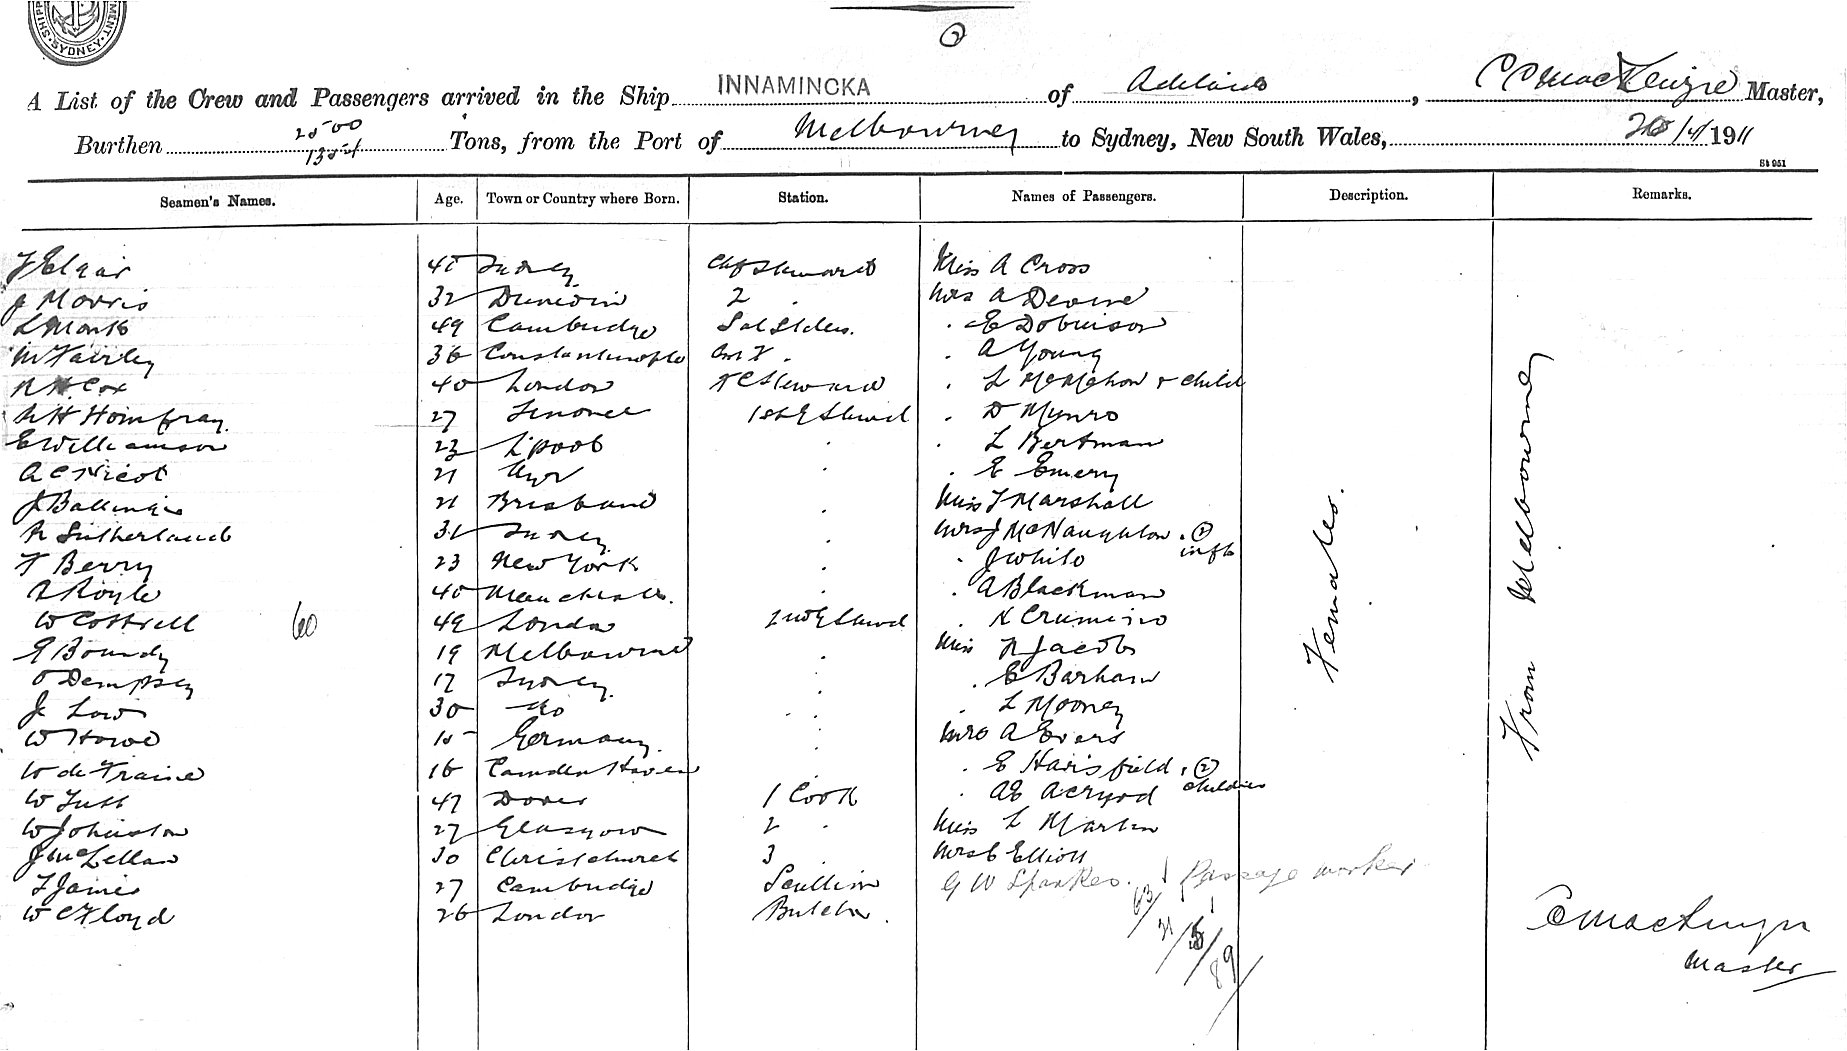 SYDNEY
A List of the Crew and Passengers arrived in the Ship INNAMINCKA of Adelaide, Master,
Burthen 2500 Tons, from the Port of Melbourne to Sydney, New South Wales, 1911
St 951
Seamen's Names. Age. Town or Country where Born. Station. Names of Passengers. Description. Remarks.
45 Sydney Chf Steward Miss A Cross
J Morris 32 Dunedin 2 . Mrs A Devine
L Monk 49 Cambridge . E Dobinson
M Fairley 36 Constantinople . A Young
Cox 40 London Steward . L McMahon & child
H Homfray. 27 . D Munro
E Williamson 23 L'pool . . L Bertman
A C Nicol 21 Ayr . . E Emery
J Ballinger 21 Brisbane . Miss J Marshall
Sutherland 31 Sydney . Mrs J McNaughton . 2 infts
F Berry 23 New York . . J White
Royle 40 Manchester. . . A Blackman
W Cottrell 60 49 London .
Boundy 19 Melbourne . Miss Jacobs
Dempsey 17 Sydney. . . E Barham
J Low 30 do . . L Mooney
W Howe 15 Germany. . Mrs A Evers
W de Fraine 16 Camden Haven . . E Harisfield, 2 children
W Tutt 47 Dover 1 Cook . AE
W Johnston 27 Glasgow 2 . Miss L Martin
J McLellan 30 Christchurch 3 . Mrs C Elliott
James 27 Cambridge Scullion G W Sparkes. 1 Passage worker
W C Floyd 26 London Butcher.
63
89
Females.
From Melbourne
Master